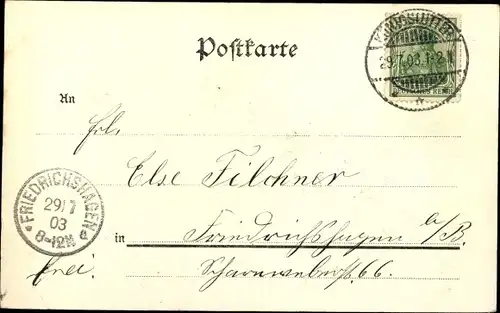 Postkarte
KÖNIGSLUTTER
29.7.03.1-2N
DEUTSCHES REICH
An
Frl.
Else Filchner
in Friedrichshagen a/B.
frei.
Scharnweberstr. 66.
FRIEDRICHSHAGEN
29/7
03
8-12N
a